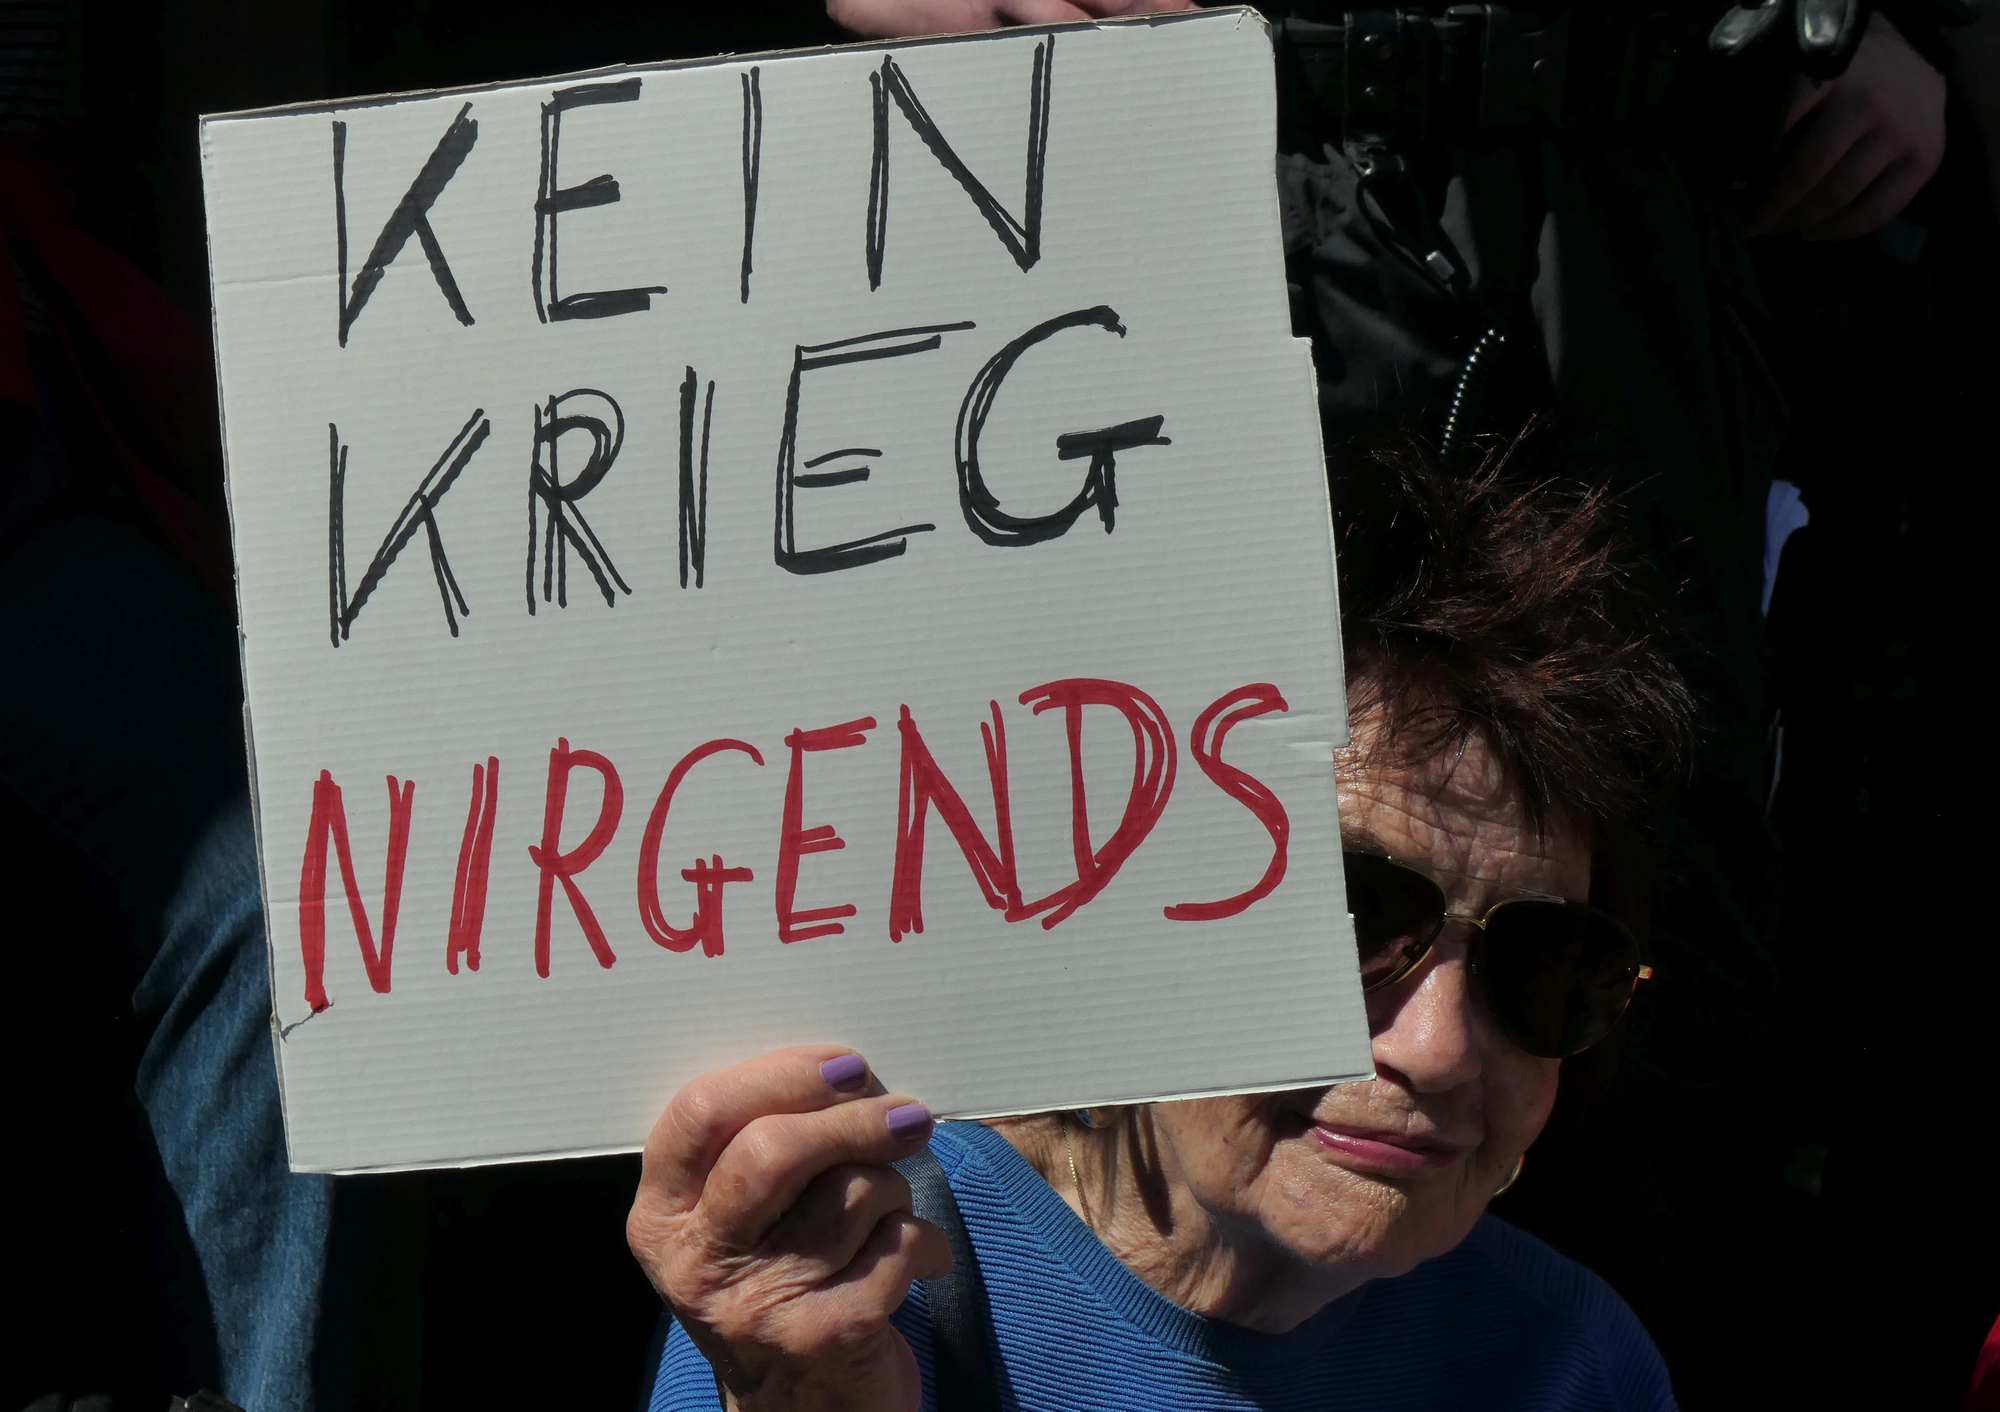 KEIN
KRIEG
NIRGENDS